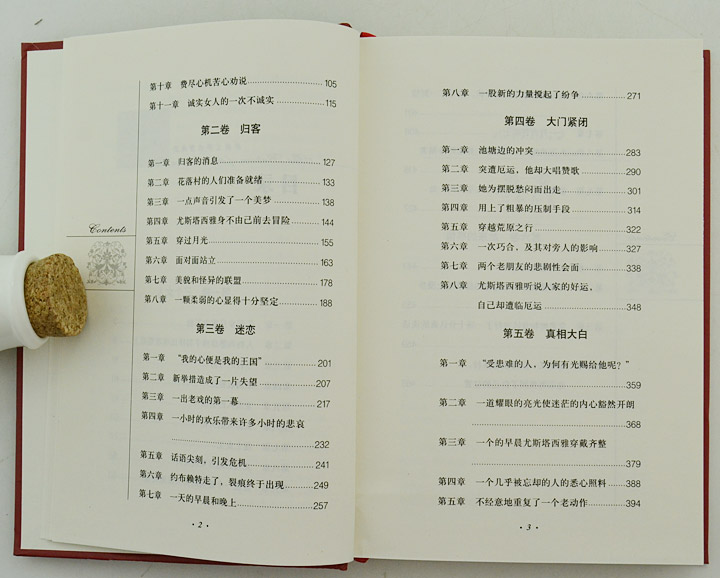 第十章 费尽心机苦心劝说……………………105
第十一章 诚实女人的一次不诚实……………115
第二卷 归客
第一章 归客的消息……………………127
第二章 花落村的人们准备就绪……………133
第三章 一点声音引发了一个美梦……………138
第四章 尤斯塔西雅身不由己前去冒险………144
第五章 穿过月光……………………155
Contents
第六章 面对面站立……………………163
第七章 美貌和怪异的联盟……………………178
第八章 一颗柔弱的心显得十分坚定…………188
第三卷 迷恋
第一章 “我的心便是我的王国”……………201
第二章 新举措造成了一片失望……………207
第三章 一出老戏的第一幕……………………217
第四章 一小时的欢乐带来许多小时的悲哀
……………………232
第五章 话语尖刻，引发危机……………………241
第六章 约布赖特走了，裂痕终于出现………249
第七章 一天的早晨和晚上……………………257
· 2 ·
第八章 一股新的力量搅起了纷争……………271
第四卷 大门紧闭
第一章 池塘边的冲突……………………283
第二章 突遭厄运，他却大唱赞歌……………290
第三章 她为摆脱愁闷而出走……………………301
第四章 用上了粗暴的压制手段……………314
第五章 穿越荒原之行……………………322
第六章 一次巧合，及其对旁人的影响………327
第七章 两个老朋友的悲剧性会面……………338
第八章 尤斯塔西雅听说人家的好运，
自己却遭临厄运……………………348
第五卷 真相大白
第一章 “受患难的人，为何有光赐给他呢？”
……………………359
第二章 一道耀眼的亮光使迷茫的内心豁然开朗
……………………368
第三章 一个的早晨尤斯塔西雅穿戴齐整
……………………379
第四章 一个几乎被忘却的人的悉心照料……388
第五章 不经意地重复了一个老动作…………394
· 3 ·